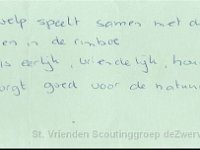 welp speelt samen met d
en in de rimboe
is eerlijk, vriendelijk, hou
orgt goed voor de natuu
St. Vrienden Scoutinggroep deZwerv